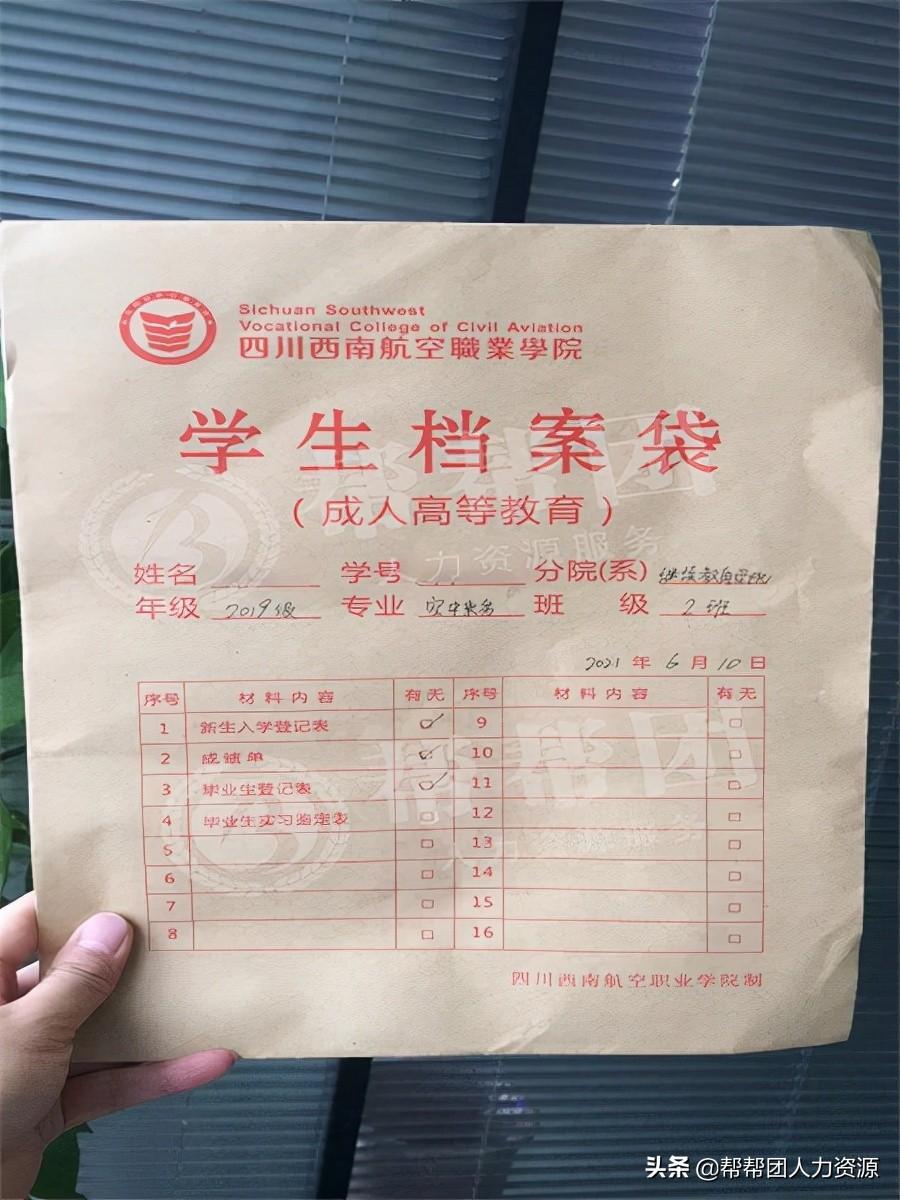 Sichuan Southwest
Vocational College of Civil Aviation
四川西南航空職業學院
学生档案袋
(成人高等教育)
姓名 学号 分院(系) 继续教育学院
年级 2019级 专业 空中乘务 班级 2班
2021年6月10日
序号 材料内容 有无 序号 材料内容 有无
1 新生入学登记表 ☑ 9 □
2 成绩单 ☑ 10 □
3 毕业生登记表 ☑ 11 □
4 毕业生实习鉴定表 □ 12 □
5 □ 13 □
6 □ 14 □
7 □ 15 □
8 □ 16 □
四川西南航空职业学院制
帮帮团
人力资源服务
帮帮团
人力资源服务
头条 @帮帮团人力资源